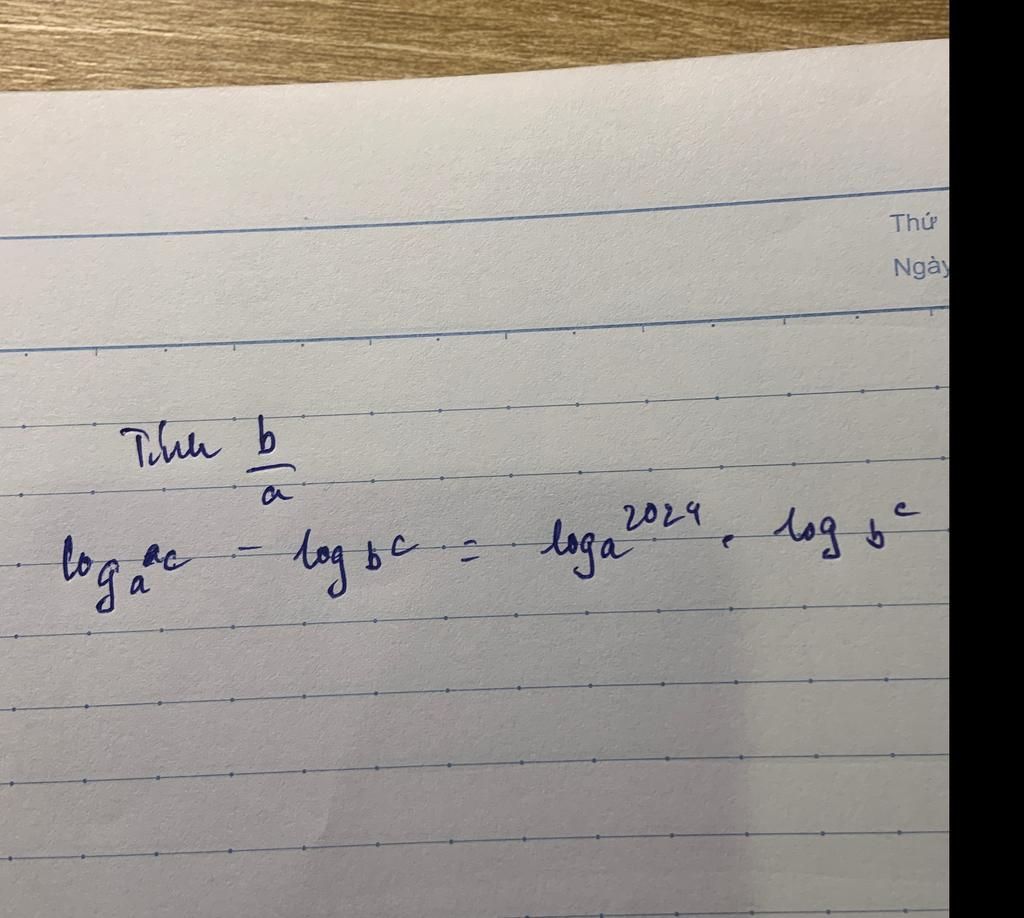 Thứ
Ngày
Tính b/a
logₐ ac - log_b c = logₐ 2024 . log_b c